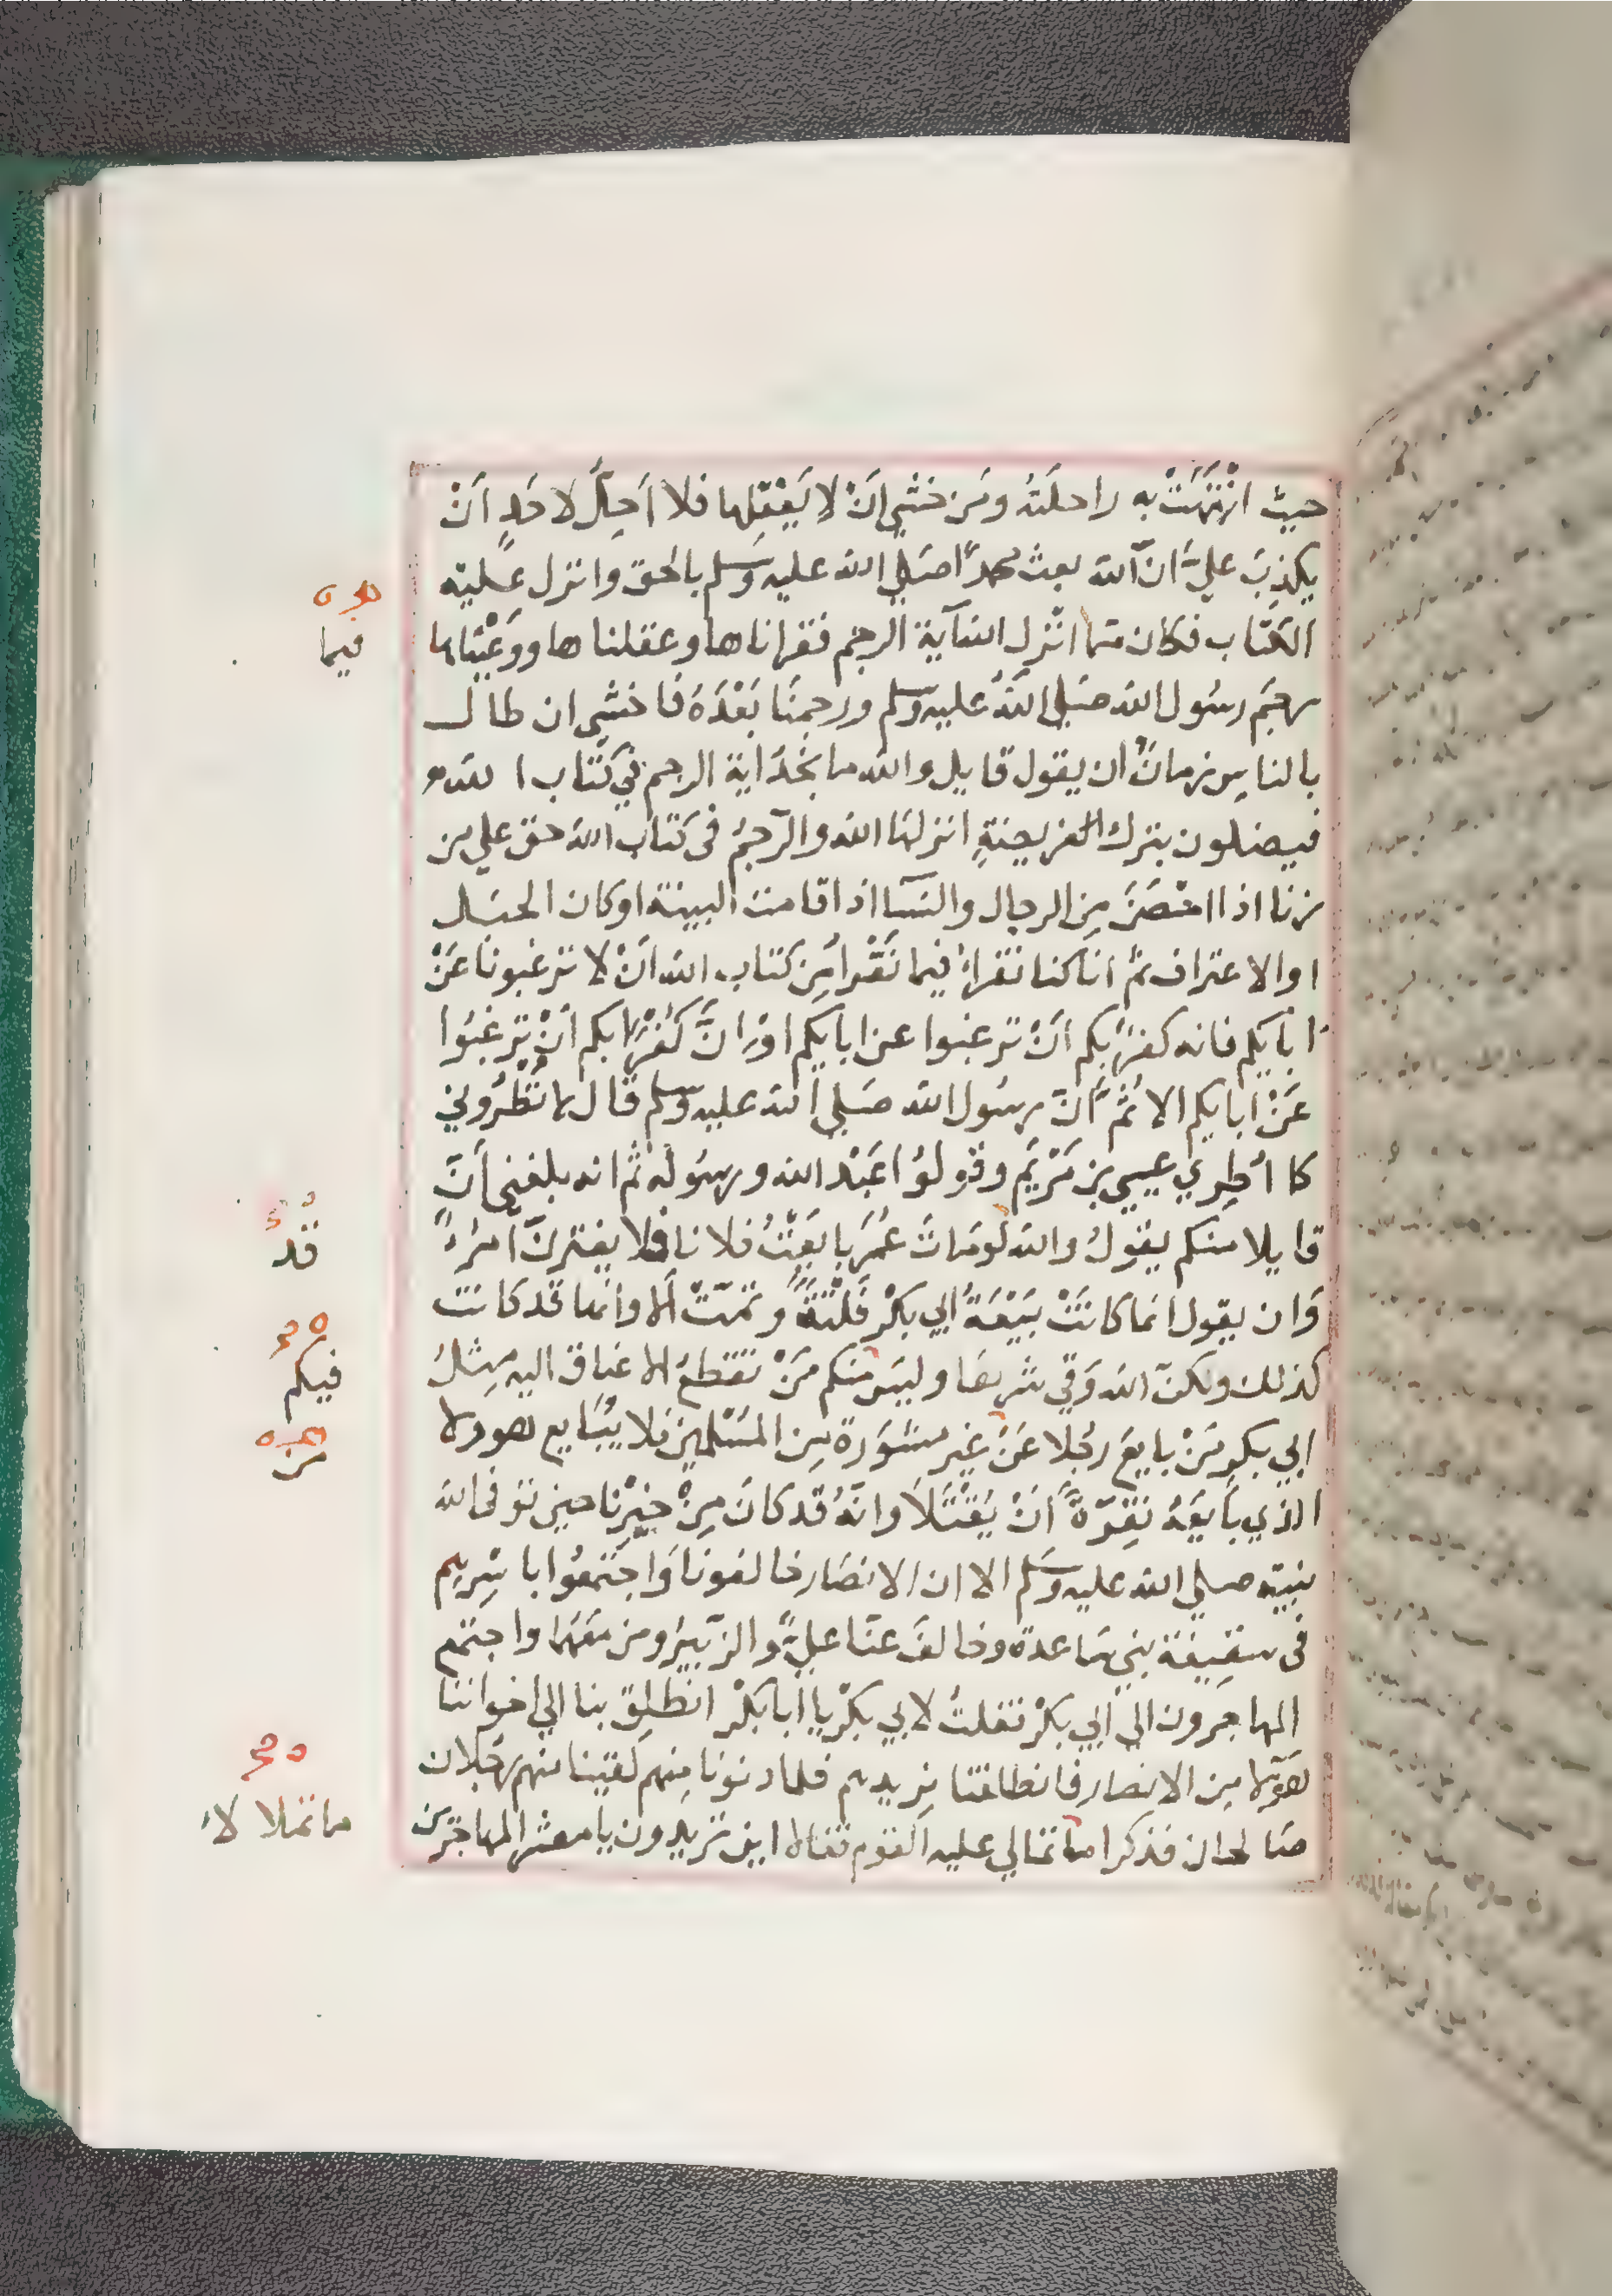 حيث انْتَهَتْ به راحلَتهُ ومَن خشي اَنْ لا يَعْقِلها فلا اُحِلُّ لاحَدٍ اَنْ
يكذِبَ عليَّ انّ الله بعث محمدًا صَلى الله عليه وَسَلم بالحق وانزل عَليْه
الكتاب فكان ممّا اَنْزل الله آية الرجم فقراناها وعقلناها ووَعَيْناها
رجَم رسُول الله صَلى اللهُ عليه وسلم ورجمنَا بَعْدَهُ فاخشي ان طال
بالناسِ زمانٌ ان يقول قايل والله ما نجدُ اية الرجم في كتاب الله
فيضلون بترك الفريضةٍ انزلها الله والرّجمُ فى كتاب الله حق علي من
زنا اذا احْصَنَ مِن الرجال والنسآ اذا قامت البينة او كان الحبَل
او الاعتراف ثمّ انا كنا نقراُ فيما نَقْرأ مِن كتاب الله اَنْ لا ترغبونا عَنْ
ابايكم فانه كفرٌ بكم اَنْ ترغبوا عن ابايكم اوْ اِنَّ كُفْرًا بكم اَنْ ترغبُوا
عَنْ ابايكم الا ثُمَّ انّ رسُول الله صَلي الله عليه وسلم قال لا تُطْرُوني
كما اُطِري عيسي بن مَرْيَم وقولوُا عَبْد الله ورسُوله ثم انه بلغني اَنّ
قايلا منكم يقولُ والله لو مَاتَ عُمَرُ بايَعْتُ فلانا فلا يغترنّ امرُءٌ
وَان يقول انما كانَتْ بَيْعَةُ ابي بكْر فَلْتَةً وتمّتْ الا وانها قد كانت
كذلك ولكنّ الله وَقي شرها وليسَ منكم مَنْ تقطعُ الاعناق اليه مِثلُ
ابي بكرٍ مَنْ بايعَ رجُلا عَنْ غير مشوَرة مِن المسْلمين فلا يُبَايع هو ولا
الذي بَايعَهُ تغِرّةً اَنْ يُقْتَلاَ وانّهُ قد كانَ مِنْ خبرنا حين توفى الله
نبيّه صلي الله عليه وَسَلم الا ان الانصَار خالفونا وَاجتمعُوا باسْرِهم
فى سقيفة بني سَاعدة وخالفَ عنّا عليٌّ والزّبَيرُ ومن مَعَهُما واجتمع
المهاجرون الي ابي بكرْ فقلتُ لابي بكرْ يا ابا بَكْر انطلِقْ بنا الي اخواننا
هؤلآ مِن الانصار فانطلقنا نريدهم فلما دنونا مِنهم لقينا منهم رجُلان
صَالحان فذكرا ما تمالي عليه القوم فقالا اين تريدون يا معشر المهاجرين
فيما
قد
فيكم
من
ما تملا لاء